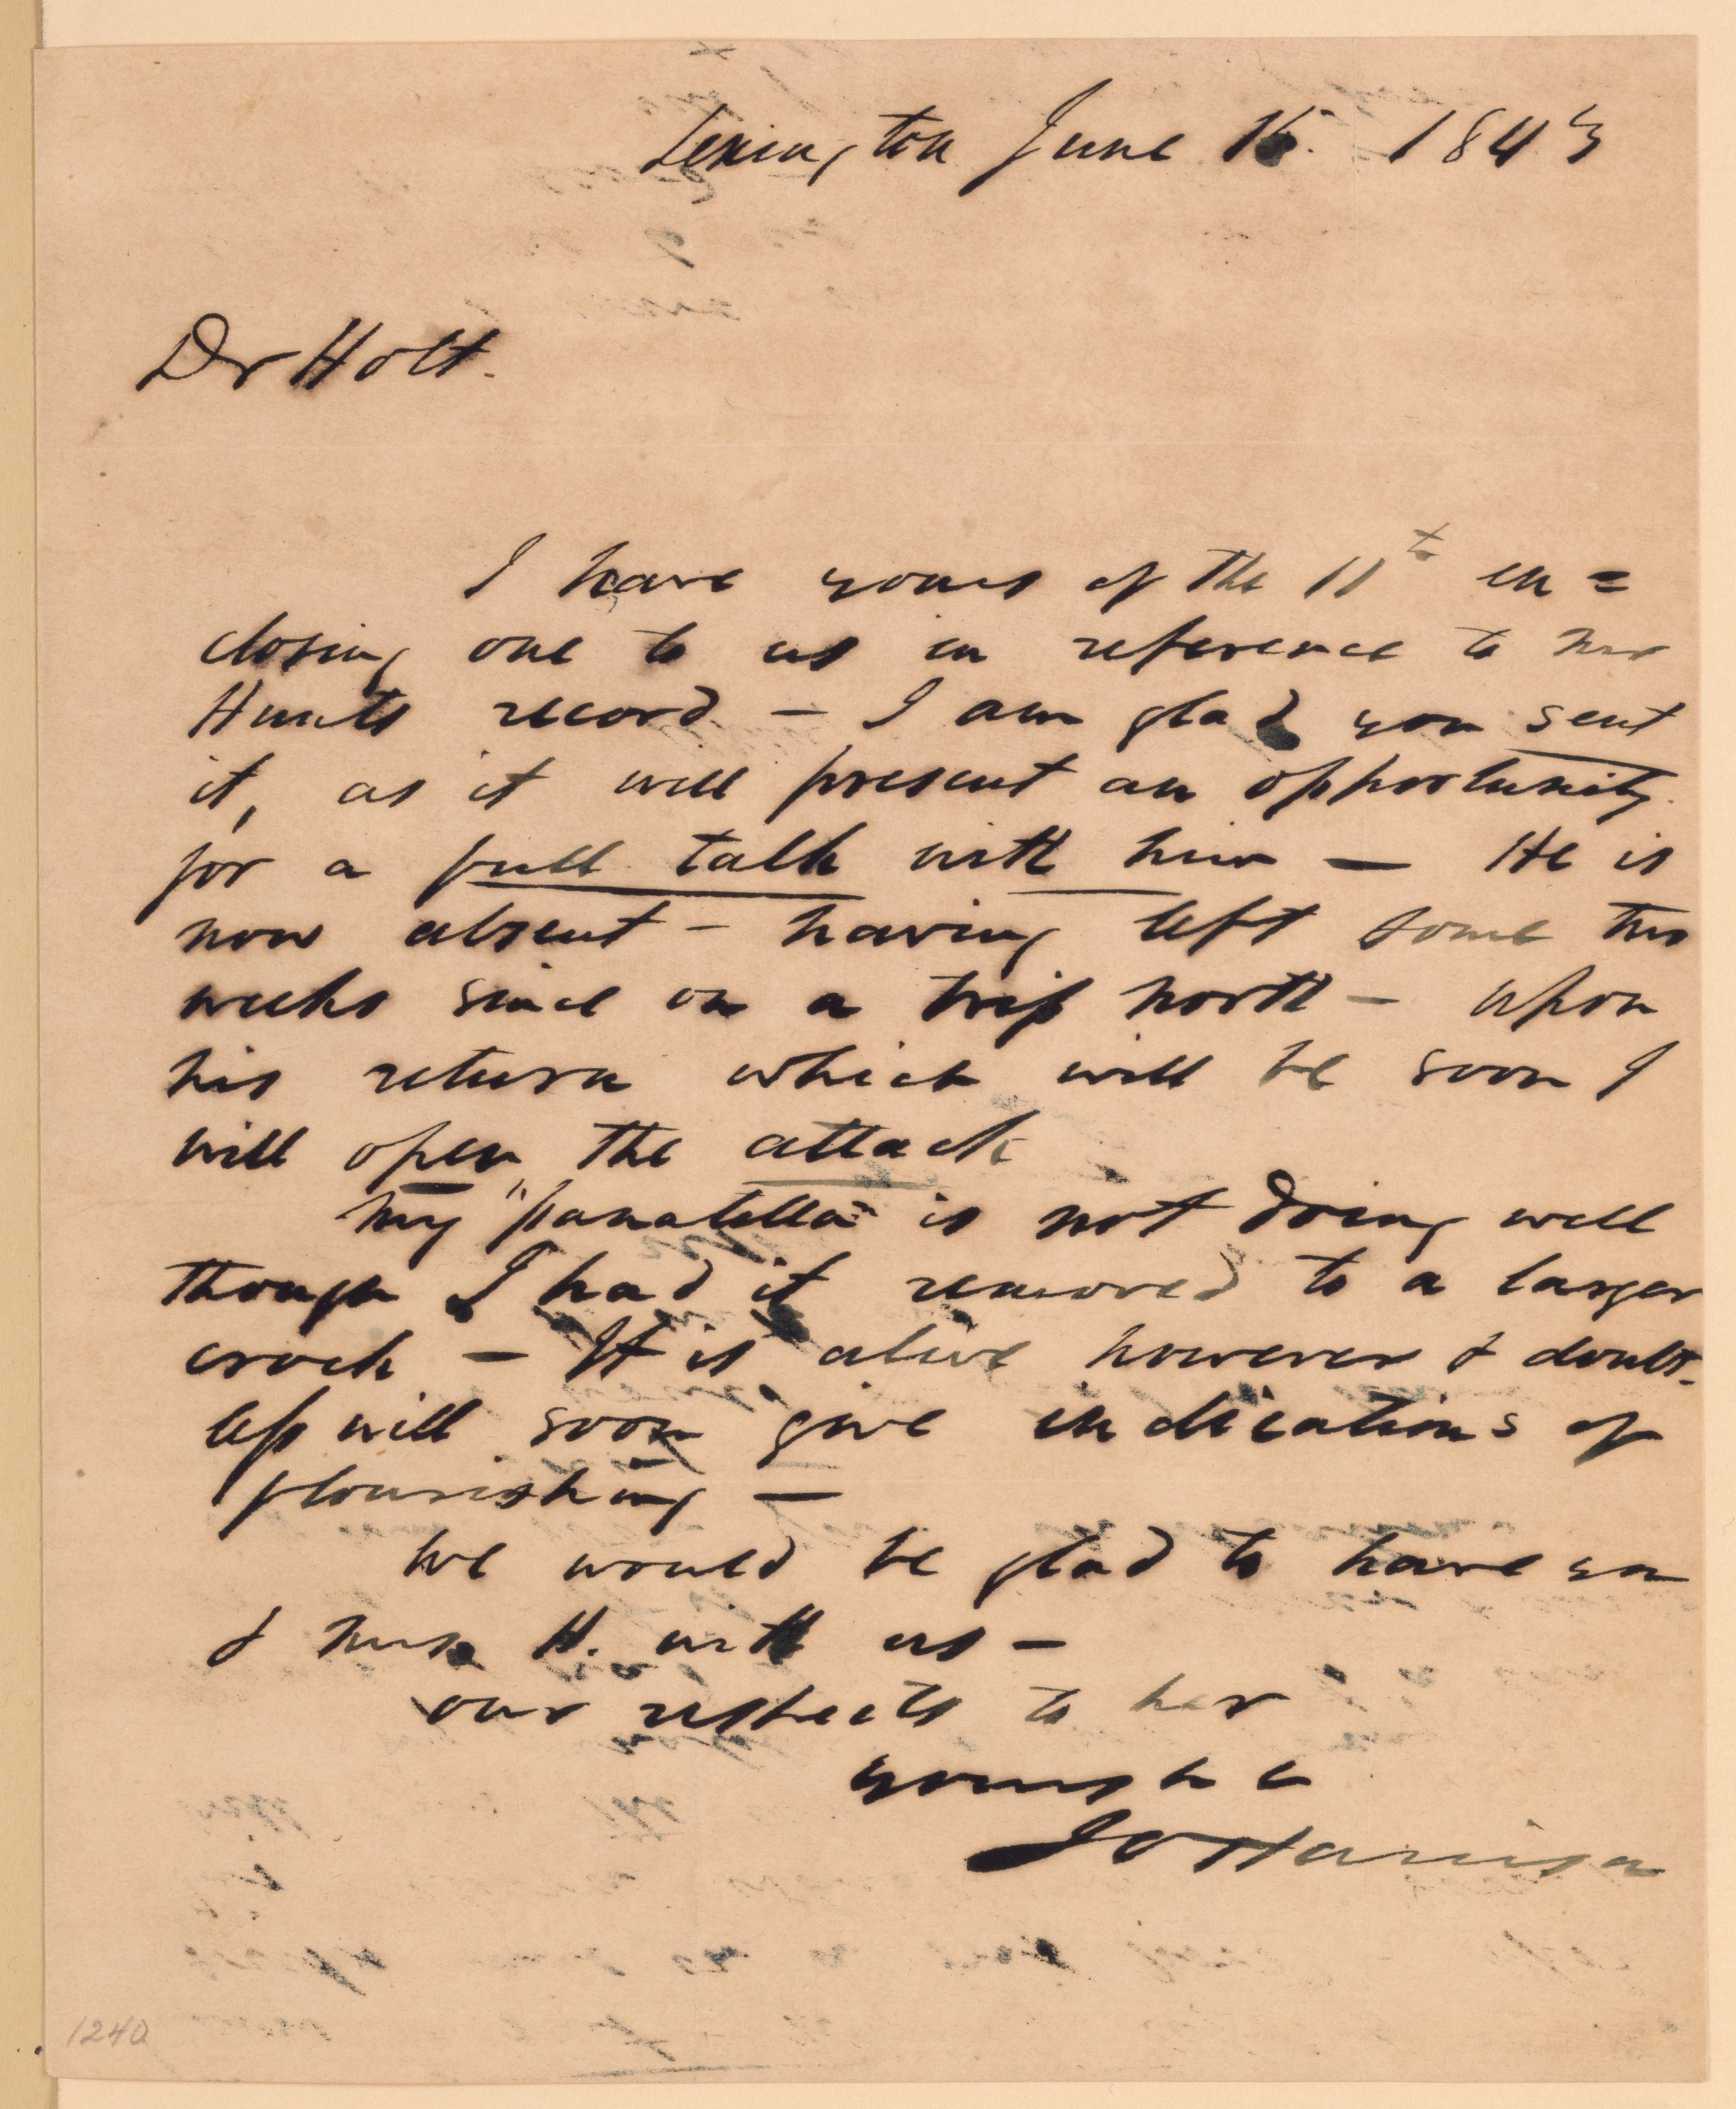 Lexington June 15. 1843
Dr Holt.
I have yours of the 11th en=
closing one to us in reference to Mr
Hunts record - I am glad you sent
it, as it will present an opportunity
for a full talk with him - He is
now absent - having left some two
weeks since on a trip north - upon
his return which will be soon I
will open the attack
My "panatella" is not doing well
though I had it removed to a larger
crock - It is alive however & doubt-
less will soon give indications of
flourishing -
We would be glad to have you
& Mrs H. with us -
our respects to her
yours &c
JO Harrison
1240